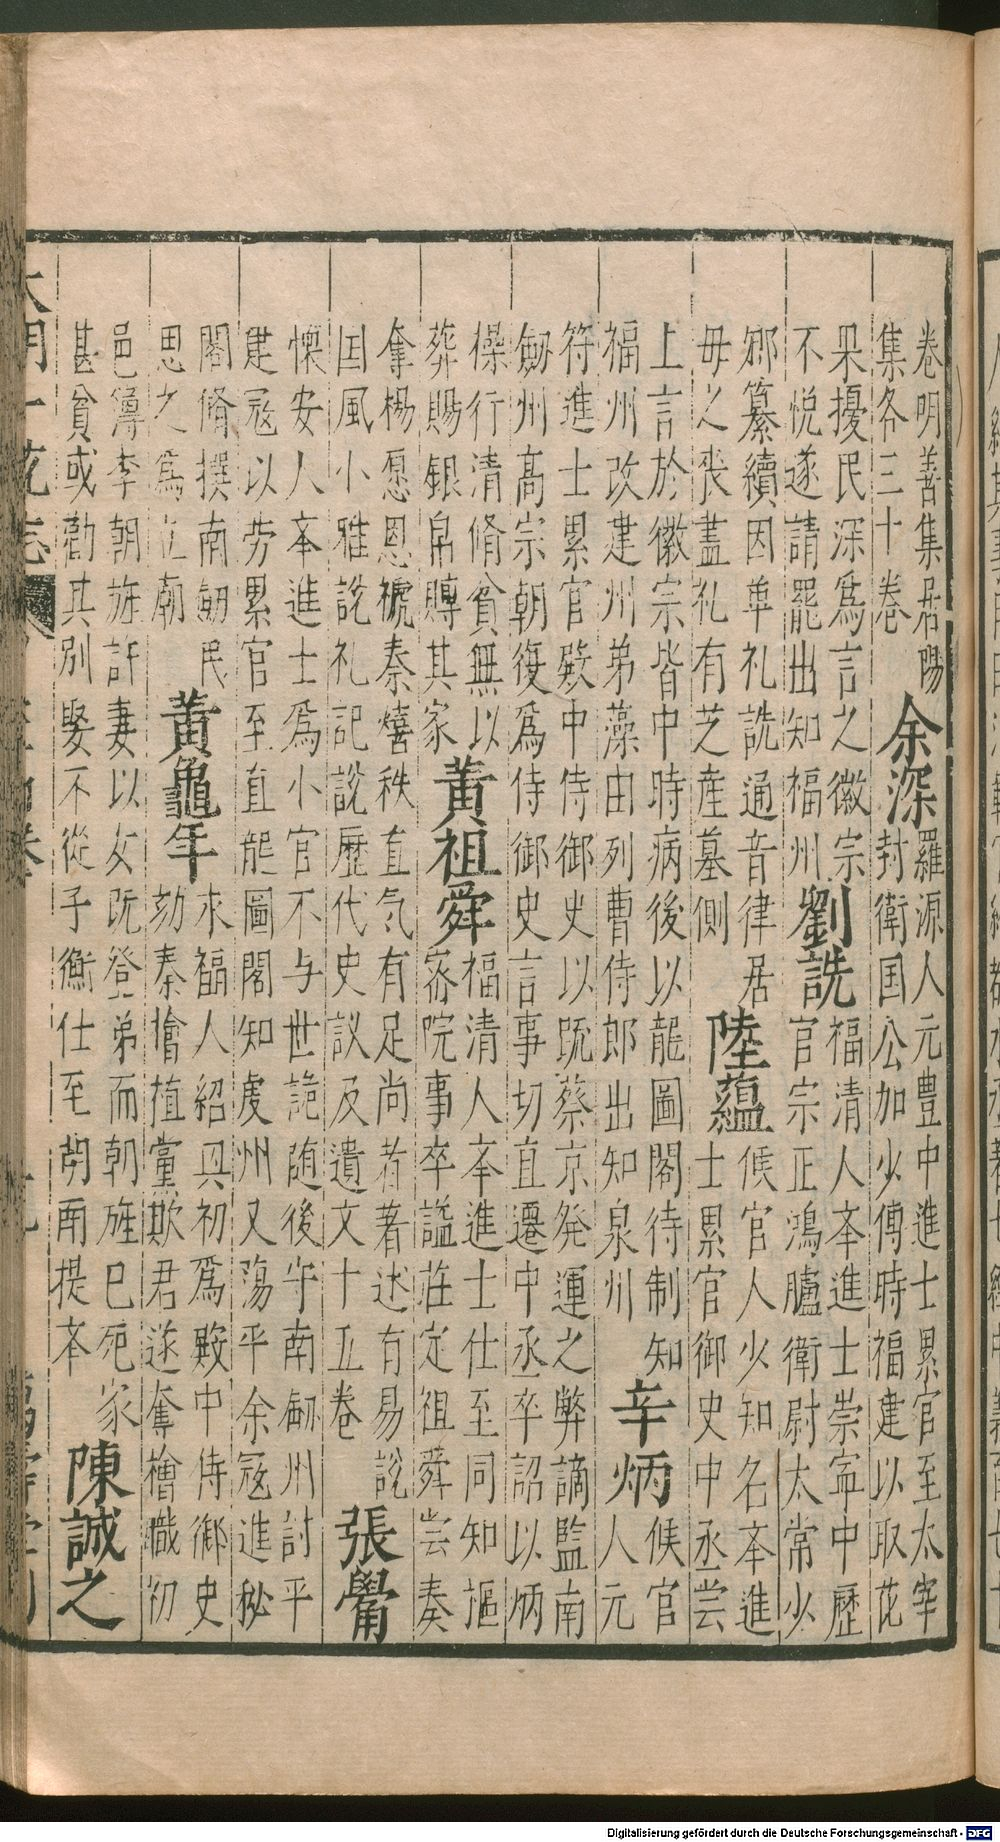 卷明善集居陽
集各三十卷
余深
羅源人元豊中進士累官至太宰
封衛国公加少傅時福建以取花
果擾民深爲言之徽宗
不悦遂請罷出知福州
劉詵
福清人夲進士崇寧中歷
官宗正鴻臚衛尉太常少
卿纂續因革礼詵通音律居
毋之喪盡礼有芝産墓側
陸藴
候官人少知名夲進
士累官御史中丞甞
上言於徽宗皆中時病後以龍圖閣待制知
福州改建州弟藻由列曹侍郎出知泉州
辛炳
候官
人元
符進士累官殿中侍御史以䟽蔡京発運之弊謫監南
劒州高宗朝復爲侍御史言事切直遷中丞卒詔以炳
操行清脩貧無以
葬賜銀帛賻其家
黄祖舜
福清人夲進士仕至同知摳
密院事卒謚莊定祖舜甞奏
奪楊愿恩褫秦熺秩直气有足尚者著述有易説
国風小雅説礼記説歷代史議及遺文十五卷
張觷
懐安人夲進士爲小官不与世詭随後守南劒州討平
建冦以劳累官至直龍圖閣知䖍州又蕩平余冦進秘
閣脩撰南劒民
思之爲立廟
黄龜年
永福人紹興初爲殿中侍御史
劾秦檜植黨欺君遂奪檜職初
邑簿李朝旌許妻以女既登弟而朝旌巳死家
甚貧或勸其別娶不從子衡仕至胡南提夲
陳誠之
Digitalisierung gefördert durch die Deutsche Forschungsgemeinschaft - DFG